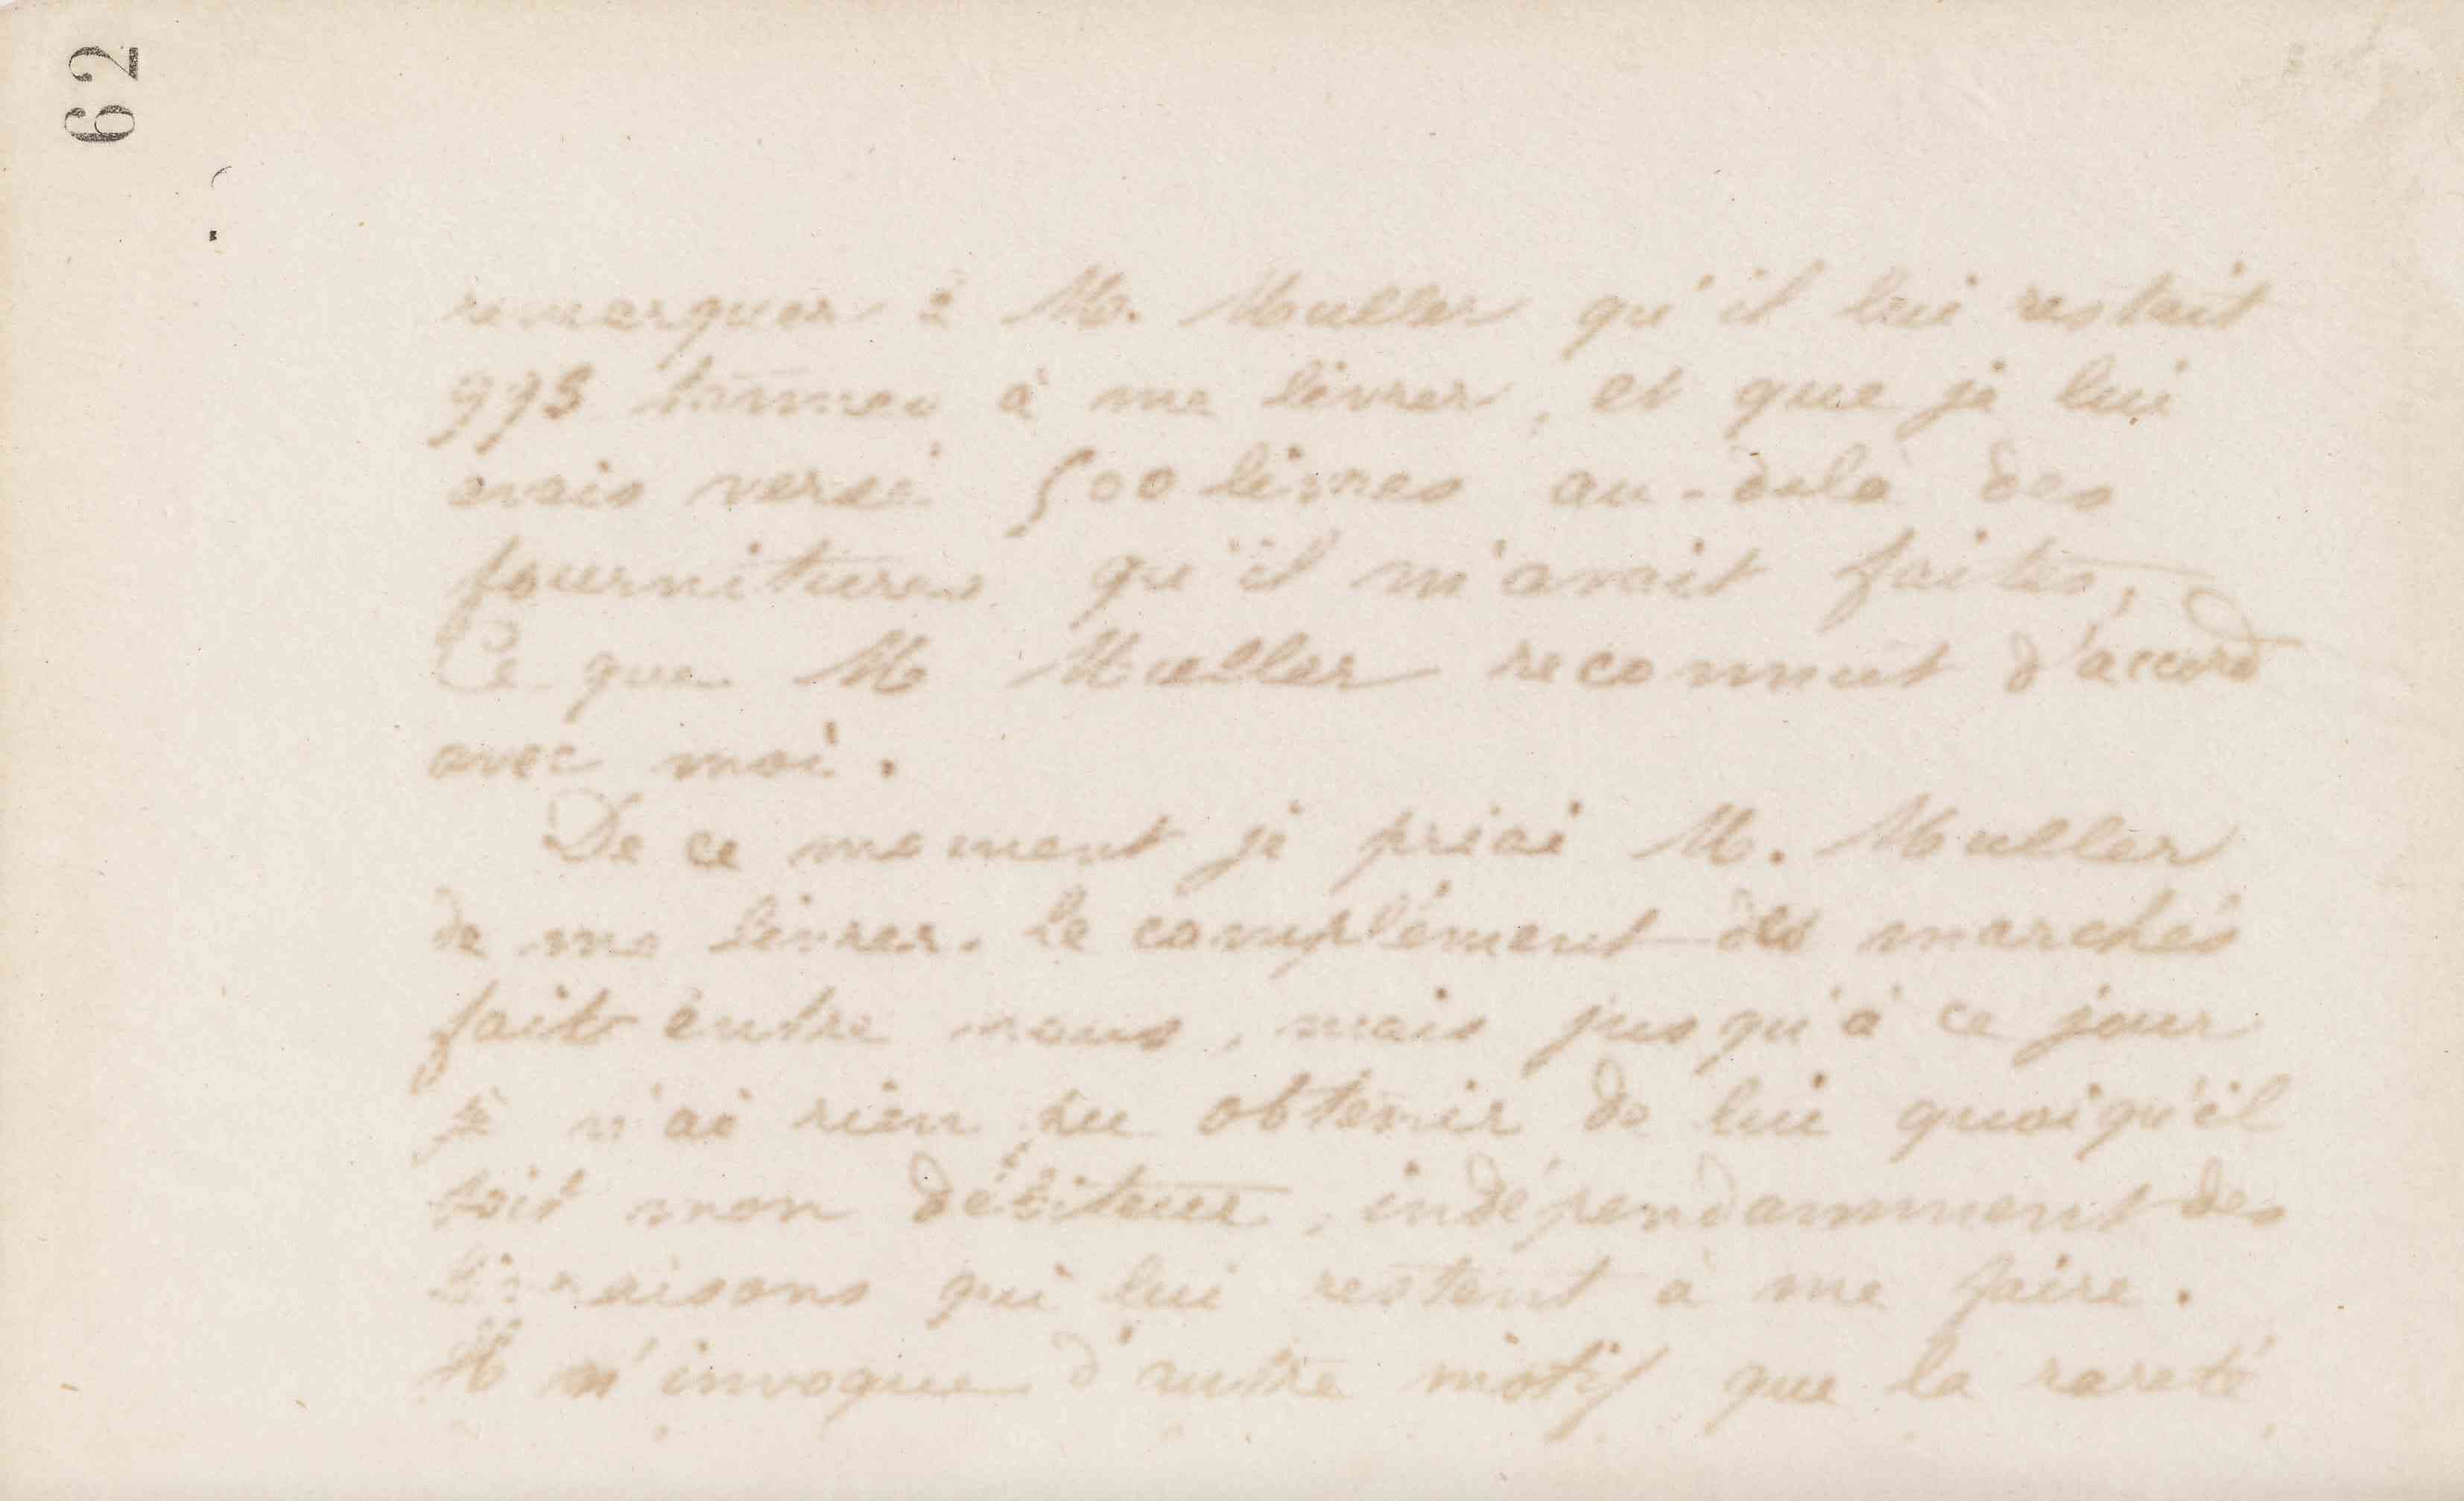 62
remarquer à M. Muller qu'il lui restait
993 tonnes à me livrer, et que je lui
avais versé 500 livres au-delà des
fournitures qu'il m'avait faites,
Ce que M Muller reconnut d'accord
avec moi.
De ce moment je priai M. Muller
de me livrer. le complément des marchés
faits entre nous, mais jusqu'à ce jour
je n'ai rien pu obtenir de lui quoiqu'il
soit mon débiteur, indépendamment des
livraisons qui lui restent à me faire.
Il n'invoque d'autre motif que la rareté